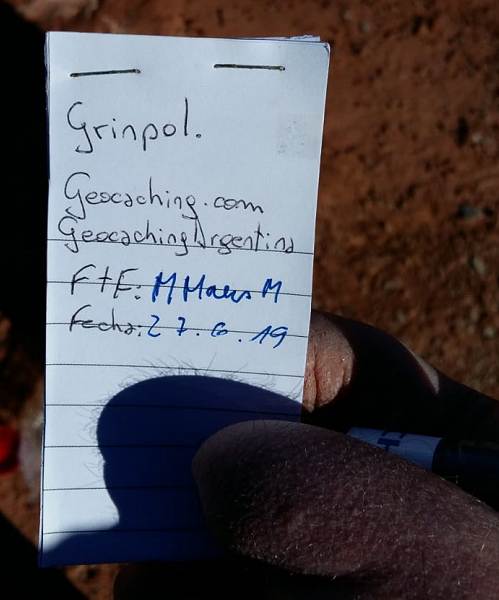 Grinpol.
Geocaching.com
GeocachingArgentina
FtF: M Maus M
Fecha: 27.6.19